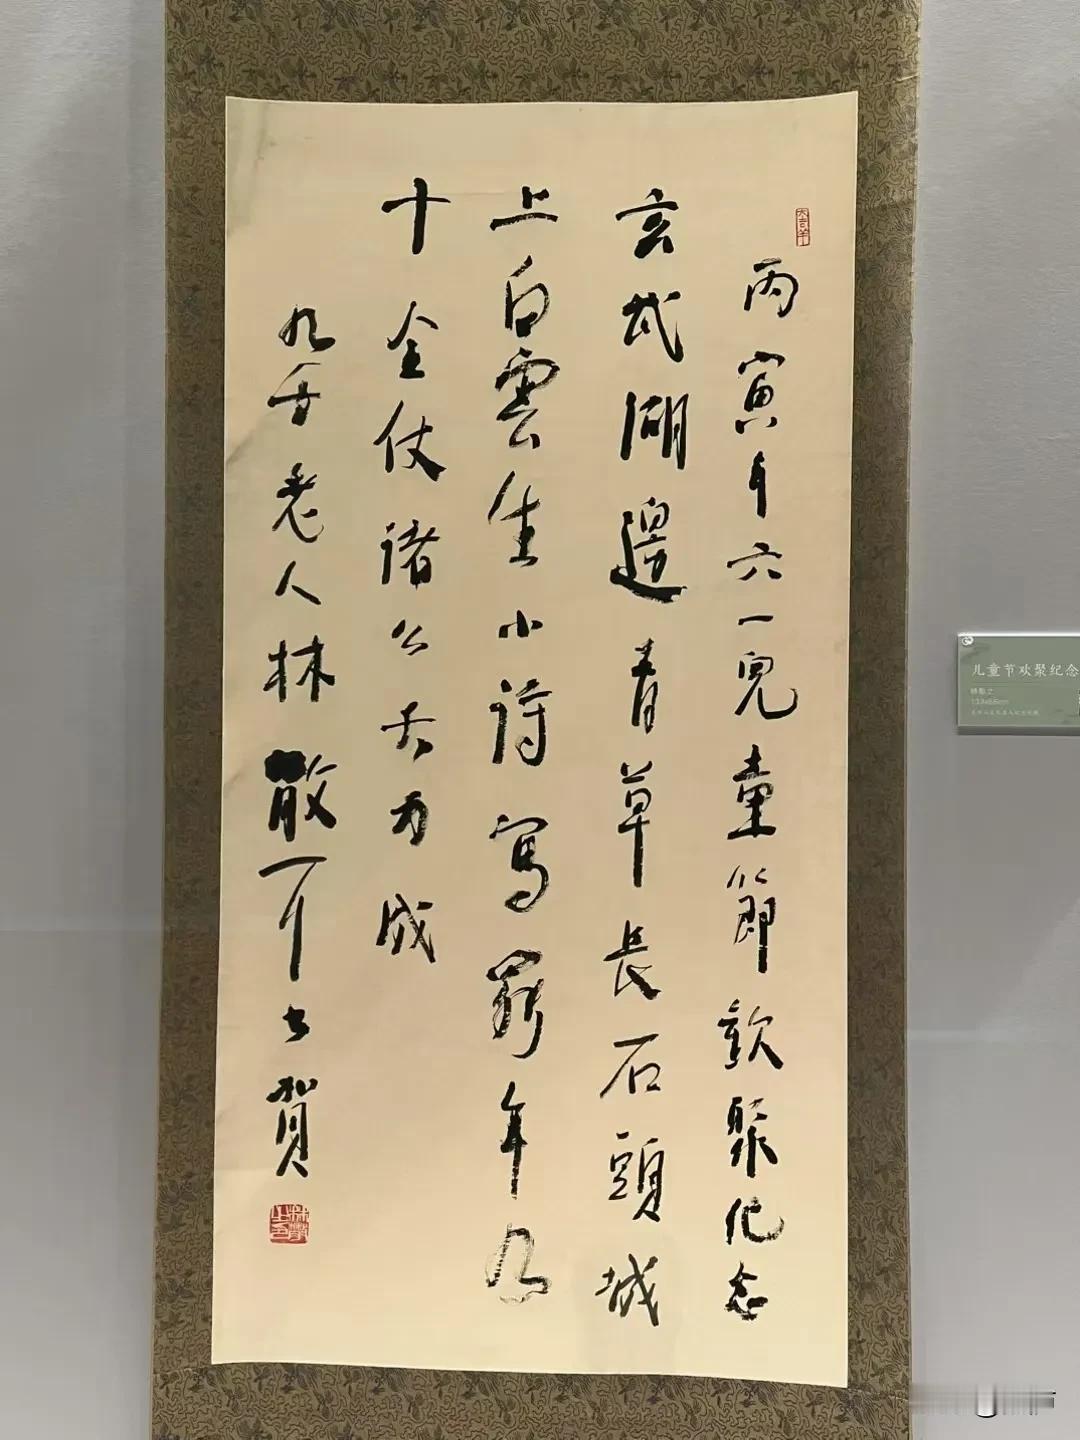 大吉羊
丙寅年六一兒童節歡聚紀念
玄武湖邊青草長石頭城
上白雲生小詩寫罷年九
十全仗諸公大力成
九老人林散耳書賀
儿童节欢聚纪念
林散之